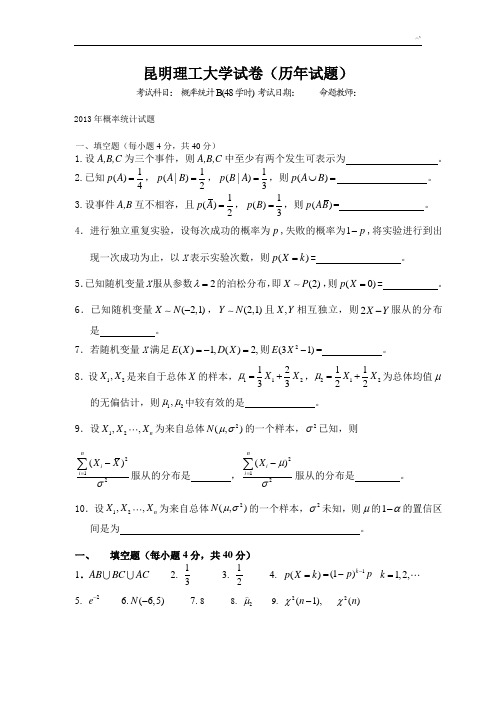 昆明理工大学试卷（历年试题）
考试科目： 概率统计B(48学时) 考试日期： 命题教师：
2013年概率统计试题
一、填空题（每小题4分，共40分）
1.设A,B,C为三个事件，则A,B,C中至少有两个发生可表示为 。
2.已知p(A)=1/4，p(A|B)=1/2，p(B|A)=1/3，则p(A∪B)= 。
3.设事件A,B互不相容，且p(A̅)=1/2，p(B)=1/3，则p(AB̅)= 。
4．进行独立重复实验，设每次成功的概率为p,失败的概率为1−p,将实验进行到出
现一次成功为止，以X表示实验次数，则p(X=k)= 。
5.已知随机变量X服从参数λ=2的泊松分布,即X~P(2),则p(X=0)= 。
6．已知随机变量X~N(−2,1)，Y~N(2,1)且X,Y相互独立，则2X−Y服从的分布
是 。
7．若随机变量X满足E(X)=−1,D(X)=2,则E(3X²−1)= 。
8．设X₁,X₂是来自于总体X的样本，μ̂₁=1/3X₁+2/3X₂，μ̂₂=1/2X₁+1/2X₂为总体均值μ
的无偏估计，则μ̂₁,μ̂₂中较有效的是 。
9．设X₁,X₂⋯,Xₙ为来自总体N(μ,σ²)的一个样本，σ²已知，则
∑ᵢ₌₁ⁿ(Xᵢ−X̅)²/σ²服从的分布是 ，∑ᵢ₌₁ⁿ(Xᵢ−μ)²/σ²服从的分布是 。
10．设X₁,X₂⋯,Xₙ为来自总体N(μ,σ²)的一个样本，σ²未知，则μ的1−α的置信区
间是为 。
一、 填空题（每小题4分，共40分）
1．AB∪BC∪AC 2. 1/3 3. 1/2 4. p(X=k)=(1−p)ᵏ⁻¹p k=1,2,⋯
5. e⁻² 6.N(−6,5) 7.8 8. μ̂₂ 9. χ²(n−1), χ²(n)